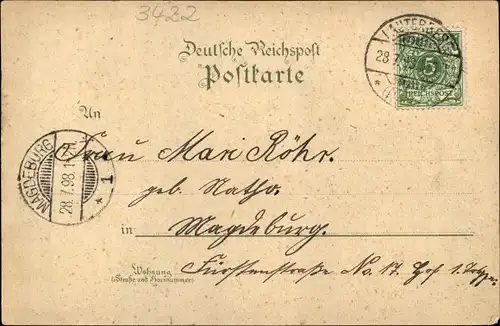 3422
Deutsche Reichspost
Postkarte
LAUTERBERG
28.7.98
5
REICHSPOST
An
Frau Mari Röhr.
geb. Natho.
in Magdeburg.
Wohnung
(Straße und Hausnummer)
Fürstenstraße No. 17. Hof 1.
MAGDEBURG
28.7.98.
1